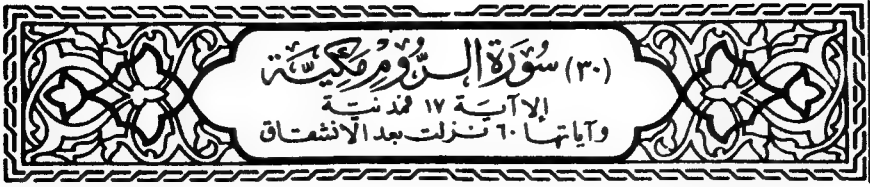 (٣٠) سُورَةُ الرُّومِ مَكِيَّة
إلا آيَة ١٧ فمدنيَّة
وآياتها ٦٠ نزلت بعد الانشقاق